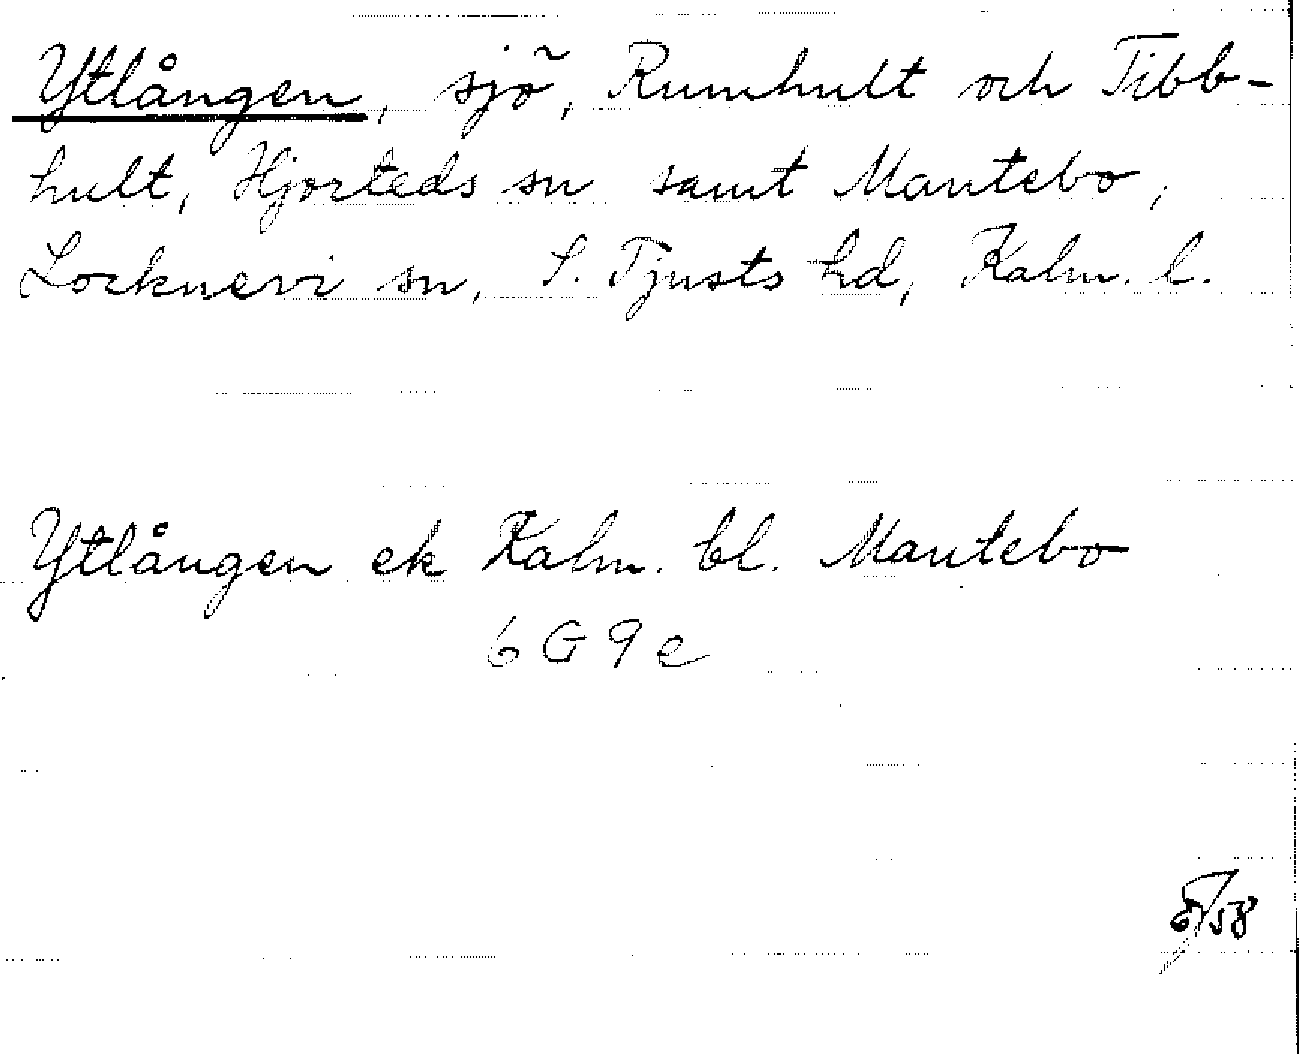 Ytlången, sjö, Rumhult och Tibb-
hult, Hjorteds sn samt Mantebo,
Locknevi sn, S. Tjusts hd, Kalm. l.
Ytlången ek Kalm. bl. Mantebo
6 G 9 e